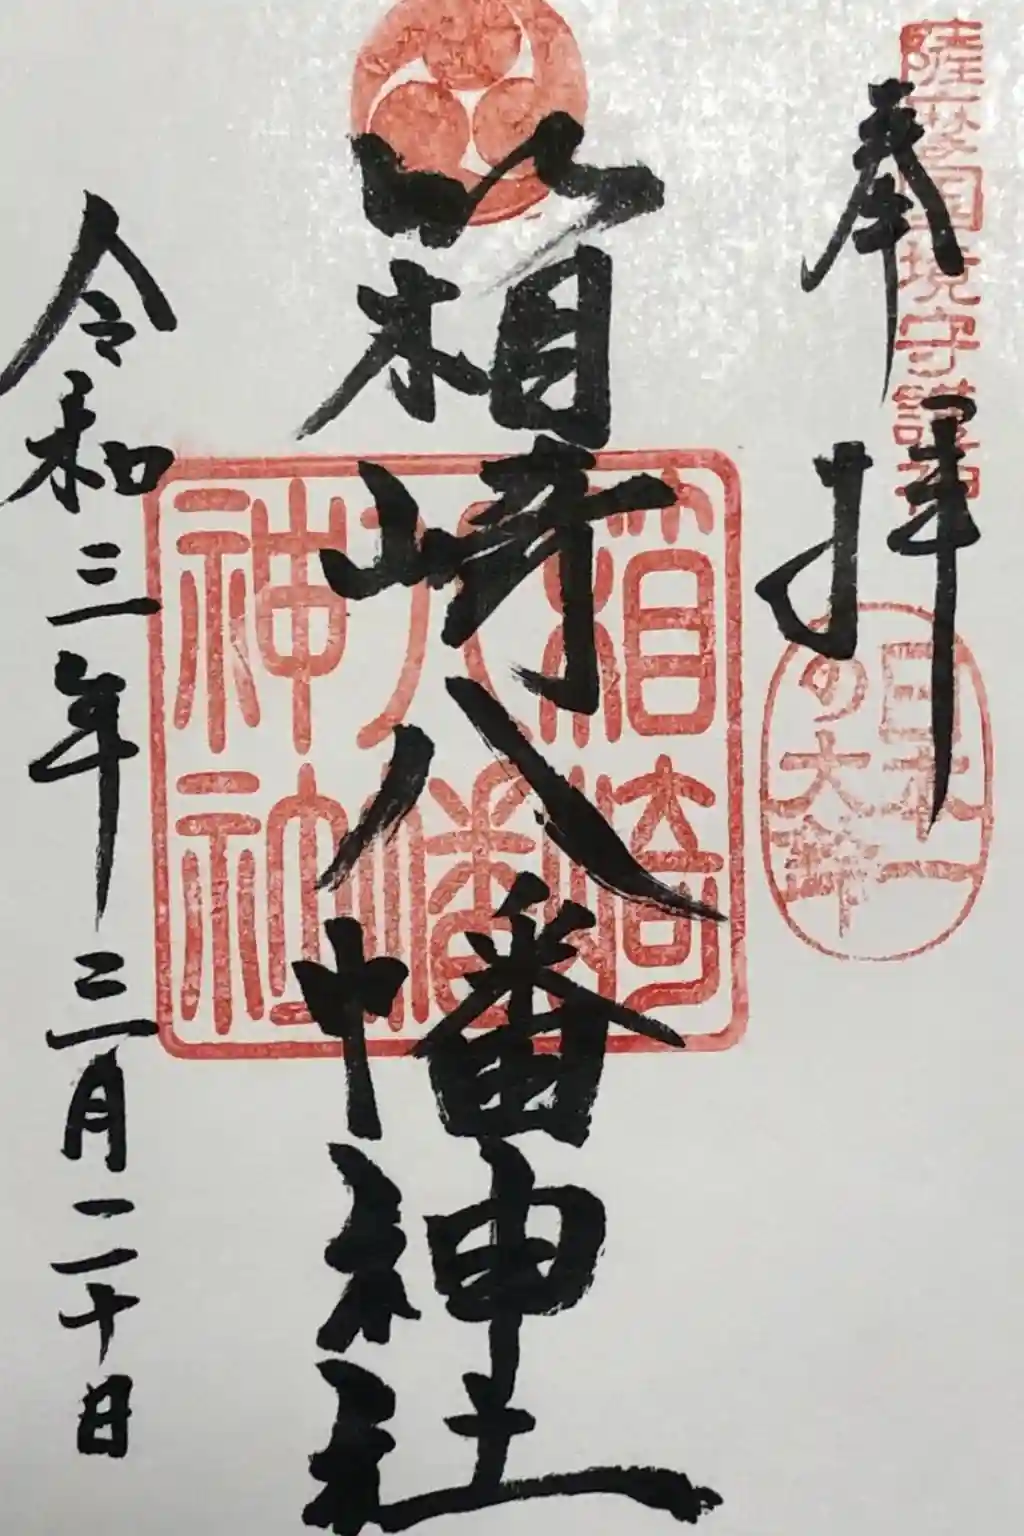 奉拝
薩摩国境守護神
日本一
の大鈴
箱崎八幡神社
箱崎
八幡
神社
令和三年三月二十日